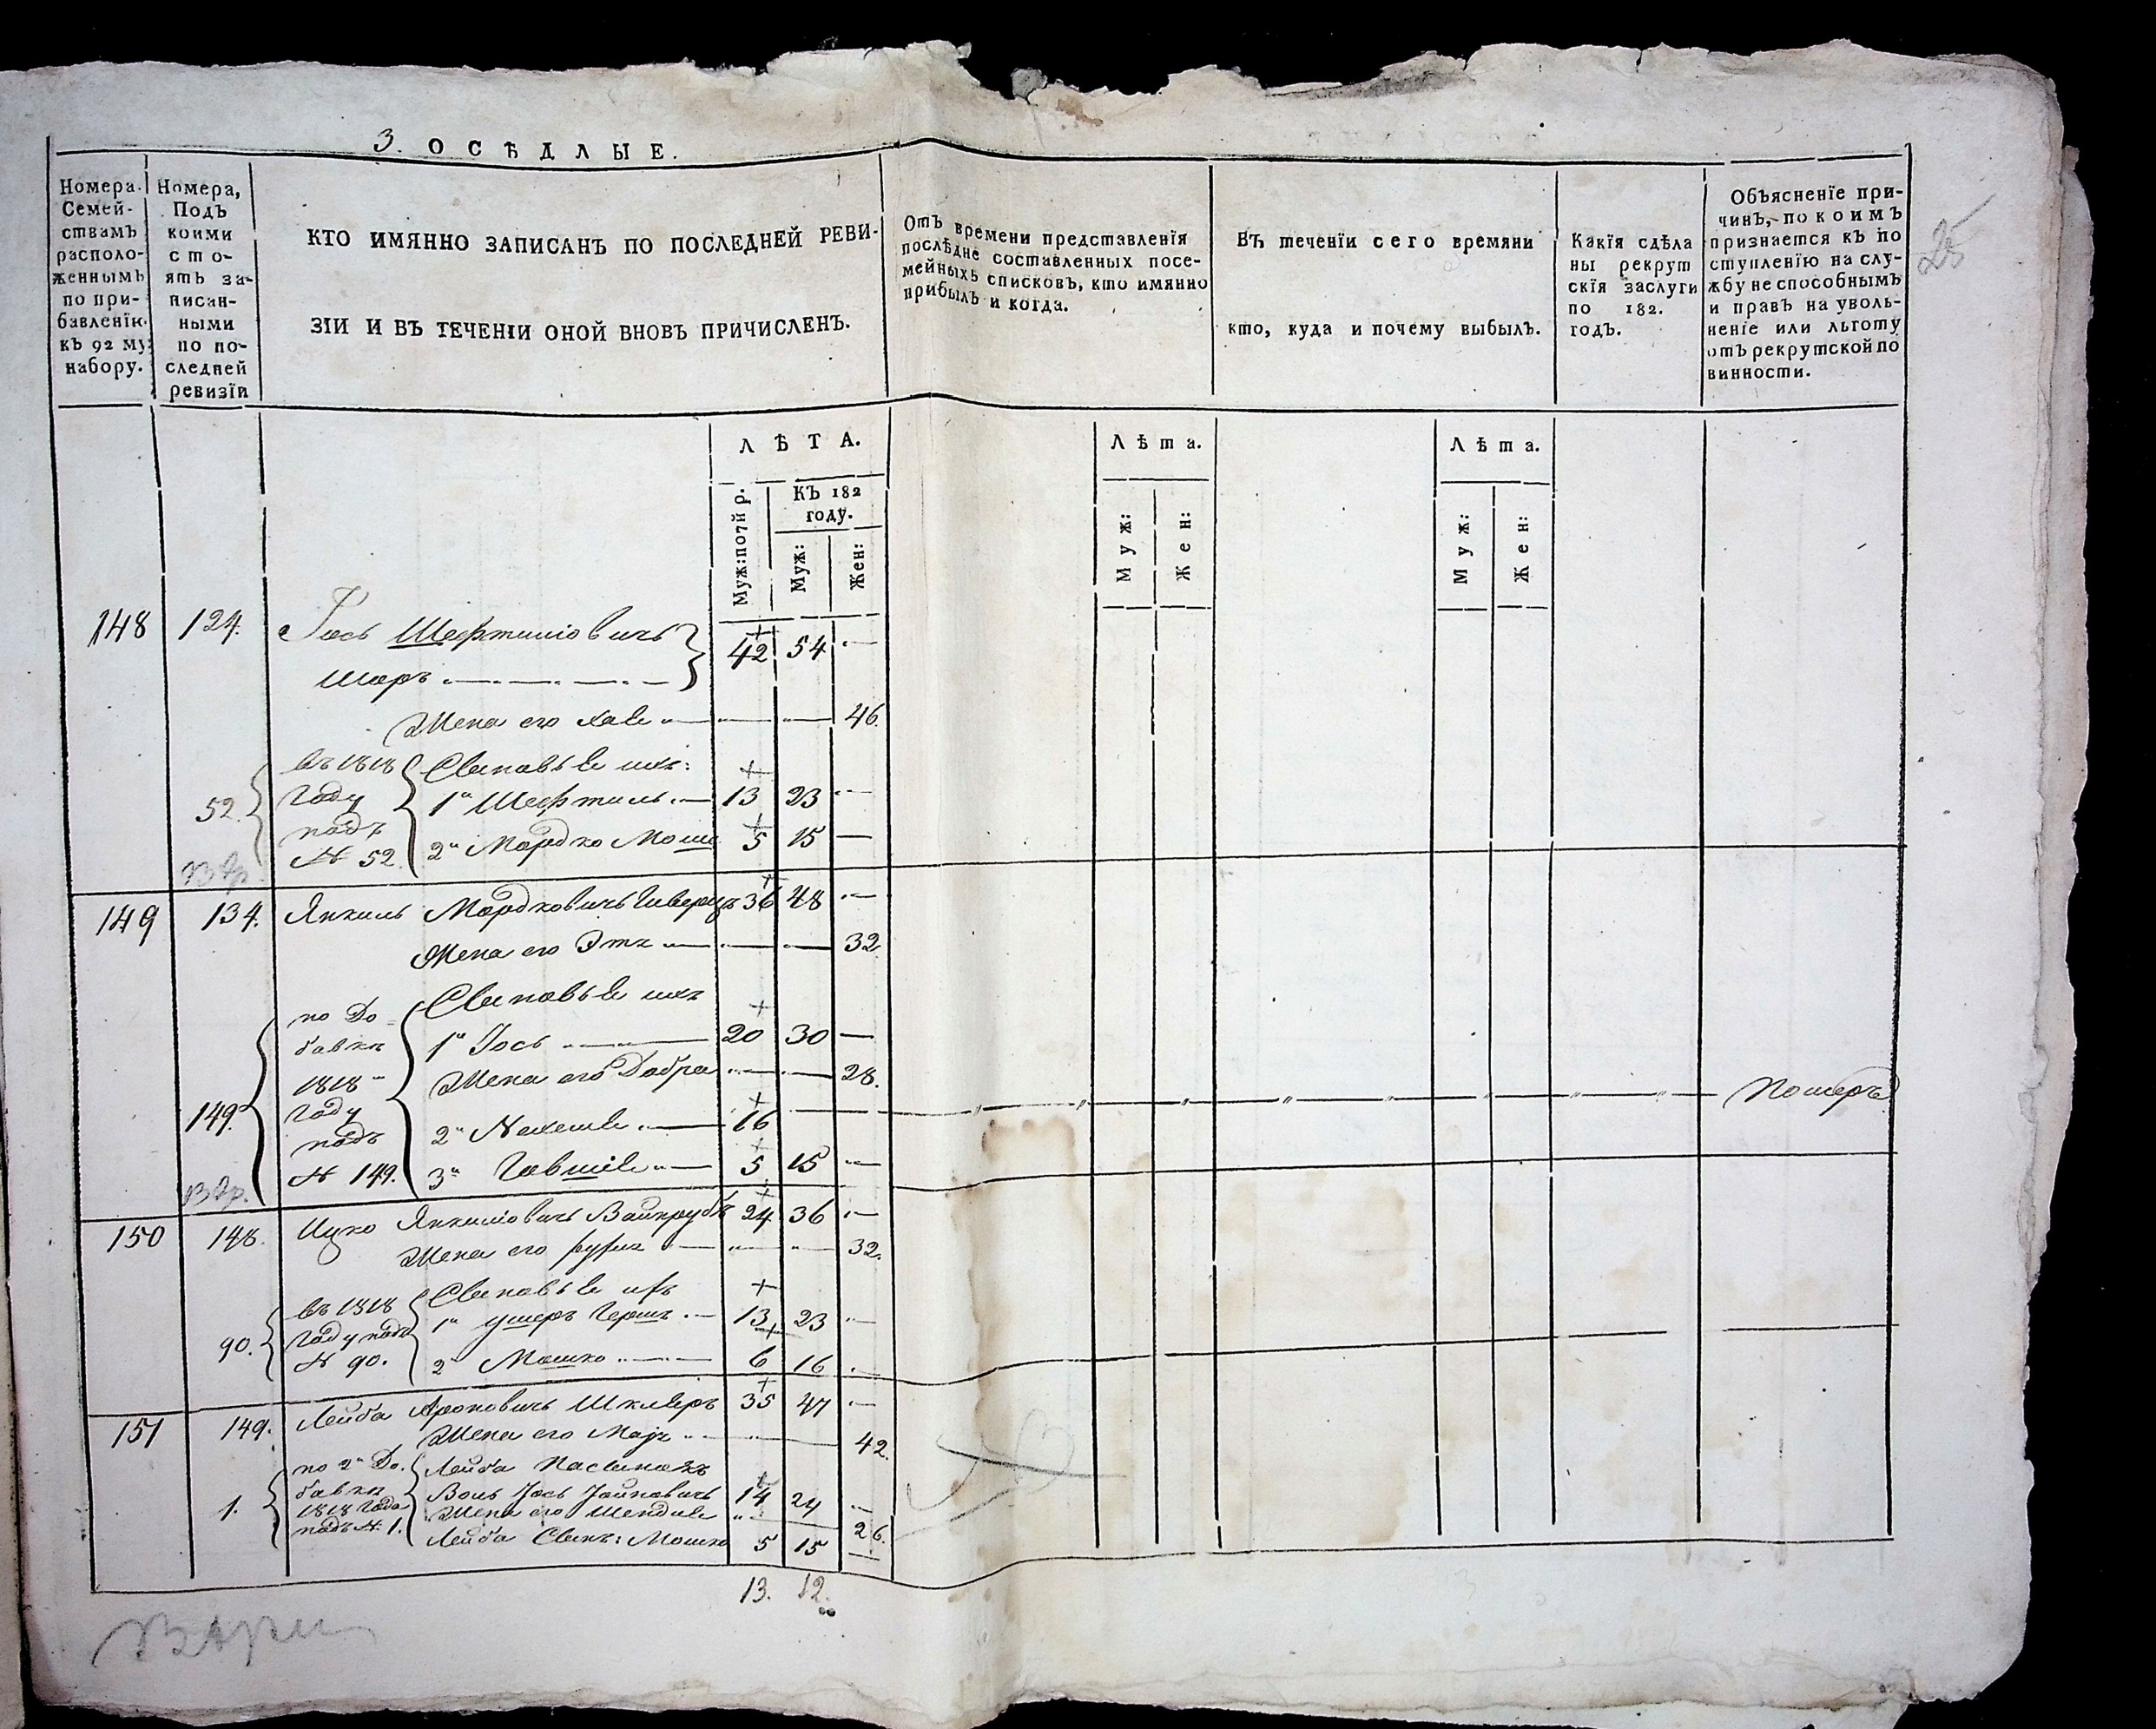 3. ОСѢДЛЫЕ.
25
Номера Семей-
ствамъ
располо-
женнымъ
по при-
бавленїю
къ 92 му
набору.
Номера,
Подъ
коими
сто-
ятъ за-
писан-
ными
по по-
следней
ревизїи
КТО ИМЯННО ЗАПИСАНЪ ПО ПОСЛЕДНЕЙ РЕВИ-
ЗІИ И ВЪ ТЕЧЕНІИ ОНОЙ ВНОВЪ ПРИЧИСЛЕНЪ.
Отъ времени представленїя
послѣдне составленных посе-
мейныхъ списковъ, кто имянно
прибылъ и когда.
Въ теченїи сего времяни
кто, куда и почему выбылъ.
Какїя сдѣла
ны рекрут
скїя заслуги
по 182.
годъ.
Объясненїе при-
чинъ, по коимъ
признается къ по
ступленїю на слу-
жбу не способнымъ
и правъ на уволь-
ненїе или льготу
отъ рекрутской по
винности.
ЛѢТА.
Муж: по 7й р.
КЪ 182
году.
Муж:
Жен:
Лѣта.
Муж:
Жен:
Лѣта.
Муж:
Жен:
148 124. Іось Шефтиліовичъ
Шоръ 42 54
Жена его Хаве 46.
52. въ 1818 году подъ N 52
Сыновье ихъ:
1й Шефтиль 13 23
2й Мордко Мошко 5 15
149 134. Янкиль Мордковичъ 36 48
Жена его Этя 32
149. по Добавки 1818 году подъ N 149.
Сыновье ихъ
1й Іось 20 30
Жена его Добра 28.
2й 16 Померъ
3й Говшіе 5 15
150 148. Ицко Янкиліовичъ Вайнрубъ 24 36
Жена его 32.
90. въ 1818 году подъ N 90.
Сыновье ихъ
1й Ушеръ Гершъ 13 23
2й Мошко 6 16
151 149. Лейба Ароновичъ Шкляръ 35 47
Жена его 42.
1. по 2й Добавки 1818 года подъ N 1.
Лейба Пасынокъ
Іось 14 24
Жена его 26.
Лейба Сынъ: Мошко 5 15
13. 12.